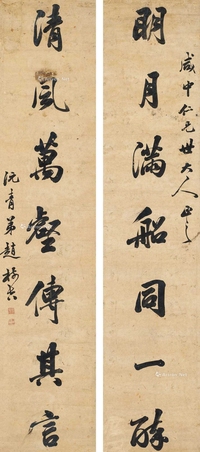 咸中仁兄世大人正之
明月满船同一醉
清风萬壑傳其言
沅青弟趙楫